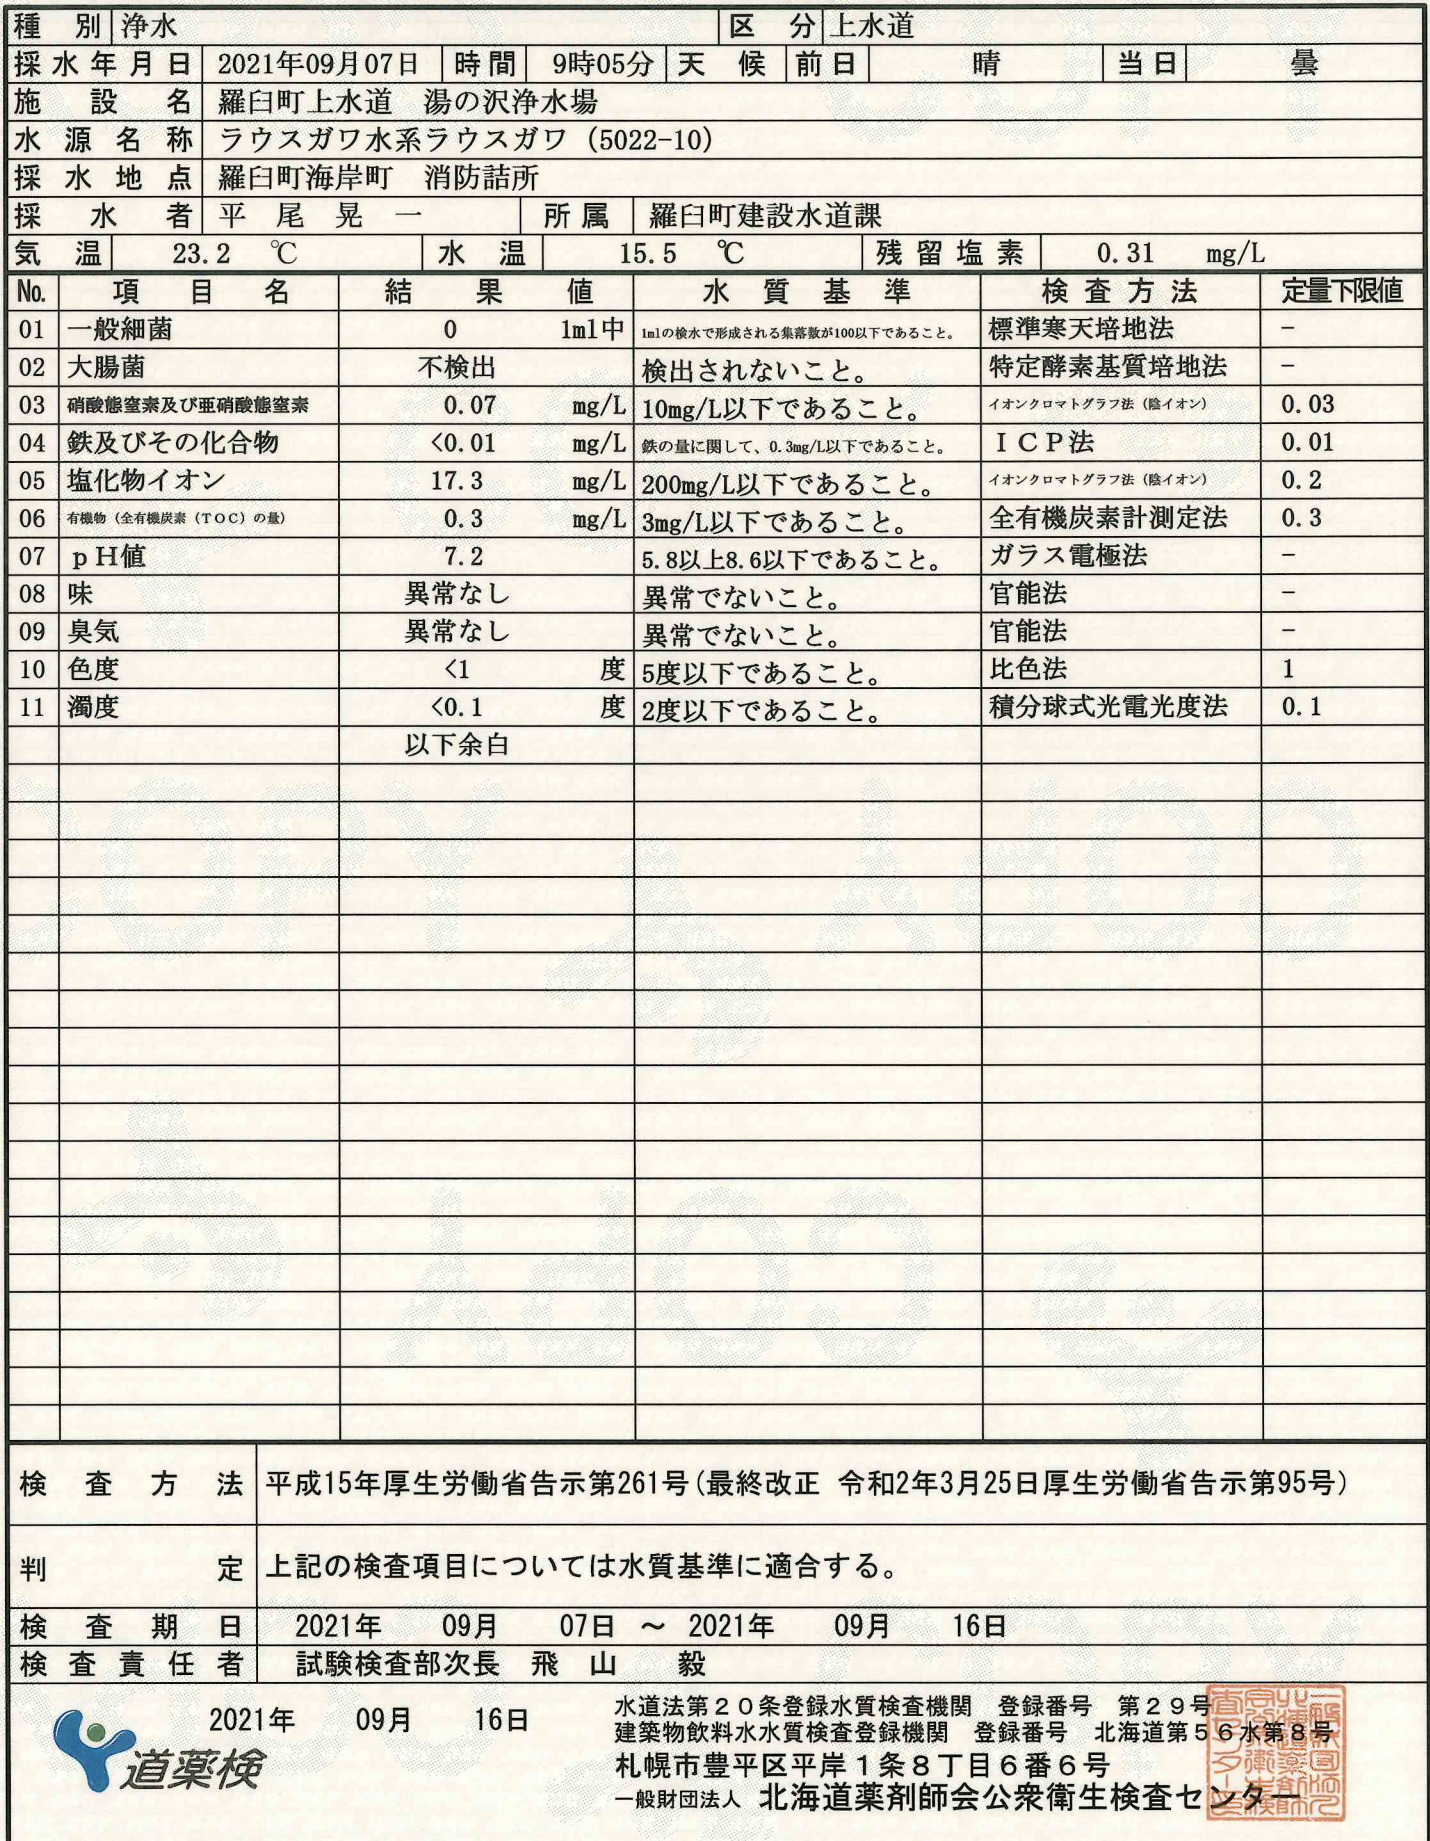 種別 浄水 区分 上水道
採水年月日 2021年09月07日 時間 9時05分 天候 前日 晴 当日 曇
施設名 羅臼町上水道 湯の沢浄水場
水源名称 ラウスガワ水系ラウスガワ (5022-10)
採水地点 羅臼町海岸町 消防詰所
採水者 平尾晃一 所属 羅臼町建設水道課
気温 23.2 ℃ 水温 15.5 ℃ 残留塩素 0.31 mg/L
No. 項目名 結果値 水質基準 検査方法 定量下限値
01 一般細菌 0 1ml中 1mlの検水で形成される集落数が100以下であること。 標準寒天培地法 −
02 大腸菌 不検出 検出されないこと。 特定酵素基質培地法 −
03 硝酸態窒素及び亜硝酸態窒素 0.07 mg/L 10mg/L以下であること。 イオンクロマトグラフ法（陰イオン） 0.03
04 鉄及びその化合物 <0.01 mg/L 鉄の量に関して、0.3mg/L以下であること。 ＩＣＰ法 0.01
05 塩化物イオン 17.3 mg/L 200mg/L以下であること。 イオンクロマトグラフ法（陰イオン） 0.2
06 有機物（全有機炭素（ＴＯＣ）の量） 0.3 mg/L 3mg/L以下であること。 全有機炭素計測定法 0.3
07 ｐＨ値 7.2 5.8以上8.6以下であること。 ガラス電極法 −
08 味 異常なし 異常でないこと。 官能法 −
09 臭気 異常なし 異常でないこと。 官能法 −
10 色度 <1 度 5度以下であること。 比色法 1
11 濁度 <0.1 度 2度以下であること。 積分球式光電光度法 0.1
以下余白
検査方法 平成15年厚生労働省告示第261号(最終改正 令和2年3月25日厚生労働省告示第95号)
判定 上記の検査項目については水質基準に適合する。
検査期日 2021年 09月 07日 ～ 2021年 09月 16日
検査責任者 試験検査部次長 飛山 毅
2021年 09月 16日
道薬検
水道法第２０条登録水質検査機関 登録番号 第２９号
建築物飲料水水質検査登録機関 登録番号 北海道第５６水第８号
札幌市豊平区平岸１条８丁目６番６号
一般財団法人 北海道薬剤師会公衆衛生検査センター
COPY
COPY
COPY